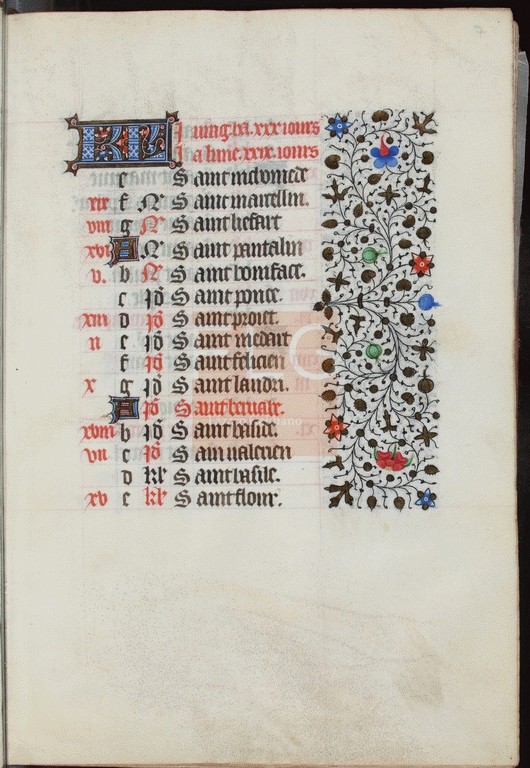 KL Juing ha .xxx. iours
la lune .xxix. iours
e Saint nichomede
xix f N Saint marcellin.
viii g N Saint liefart
xvi A N Saint pantalin
v. b N Saint boniface.
c io Saint ponce.
xiii d io Saint proiet.
ii e io Saint medart
f io Saint felicien
x g io Saint landri.
A io Saint bernabe.
xviii b io Saint baside.
vii c io Sain ualerien
d kl' Saint basile.
xv e kl' Saint flour.